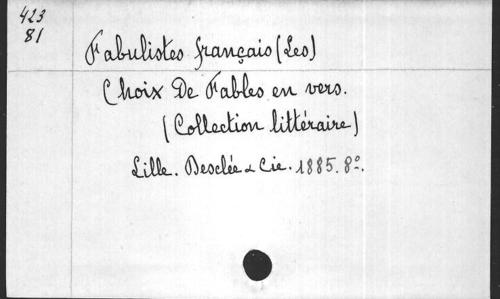 423
81
Fabulistes français (Les)
Choix De Fables en vers.
(Collection littéraire)
Lille. Desclée & Cie. 1885. 8º.